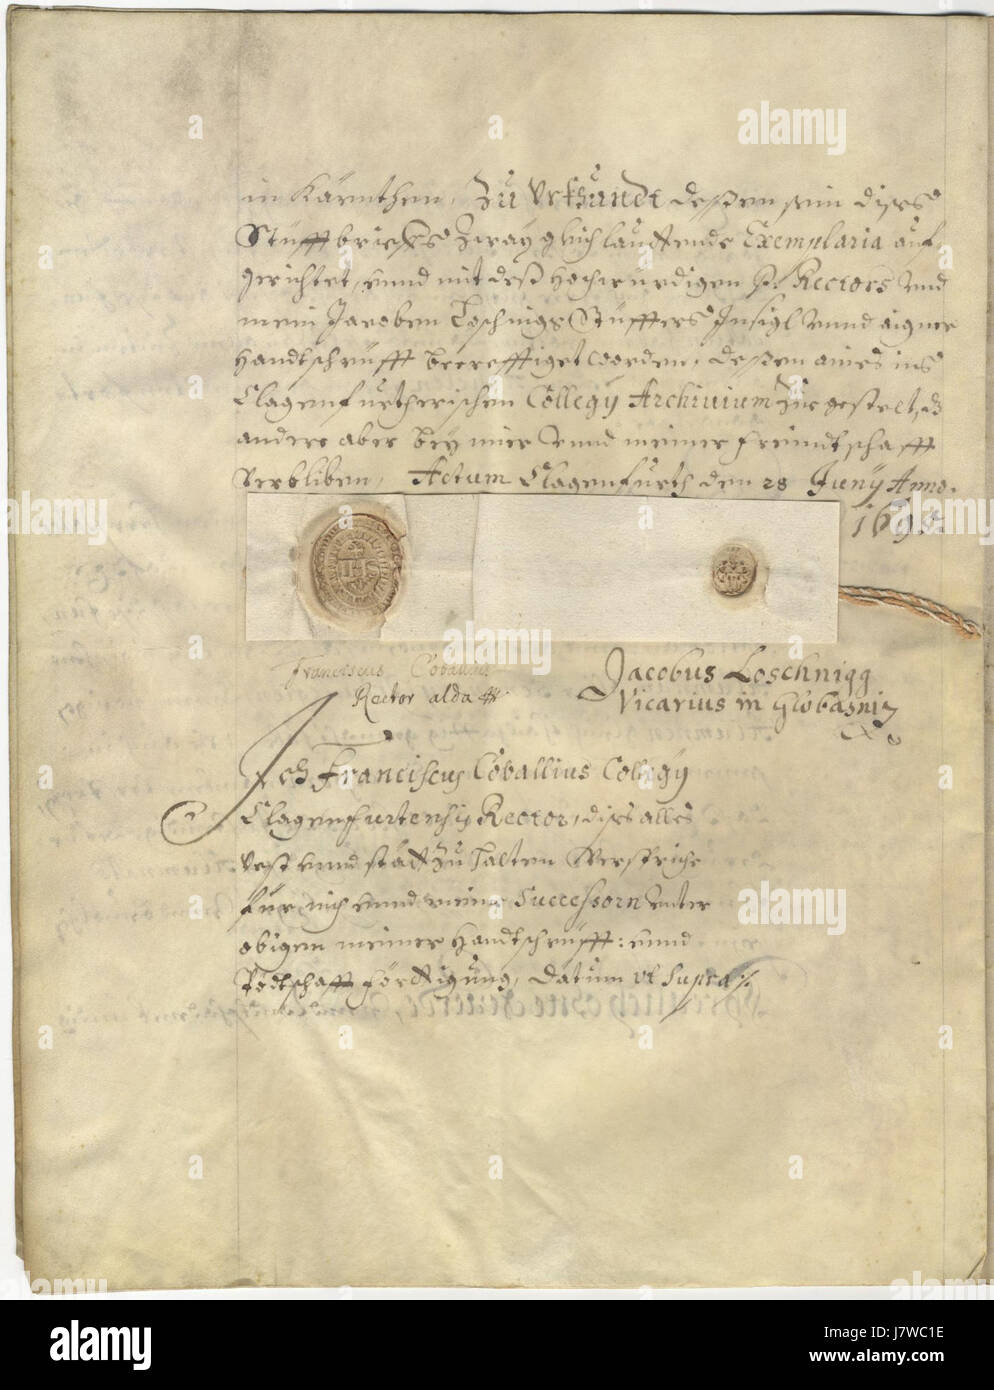 in Kärnthen, Zu Urkhundt dessen sein dises
Stüfftbriefs Zway gleichlauttende Exemplaria auf,
gerichtet, vnnd mit dess Hochwürdigen P. Rectors vnd
mein Jacoben Loschnigg Stüffters Insigl vnnd aigner
Handtschrüfft becrefftiget worden, dessen aines ins
Clagenfurtherischen Collegÿ Archiuium
andere aber beÿ mier vnnd meiner Freündtschafft
verbliben, Actum Clagenfurth den 28 Junÿ Anno.
Franciscus Coballius
Rector alda
Jacobus Loschnigg
Vicarius in Globasniz
Ich Franciscus Coballius Collegÿ
Clagenfurtensis Rector, dises alles
vest vnnd stätt zu halten Versprich
für mich vnnd meine Successorn vnter
obigen meiner Handtschrüfft: vnnd
Pödtschafft Förttigung, Datum vt Supra
alamy
a
Image ID: J7WC1E
www.alamy.com